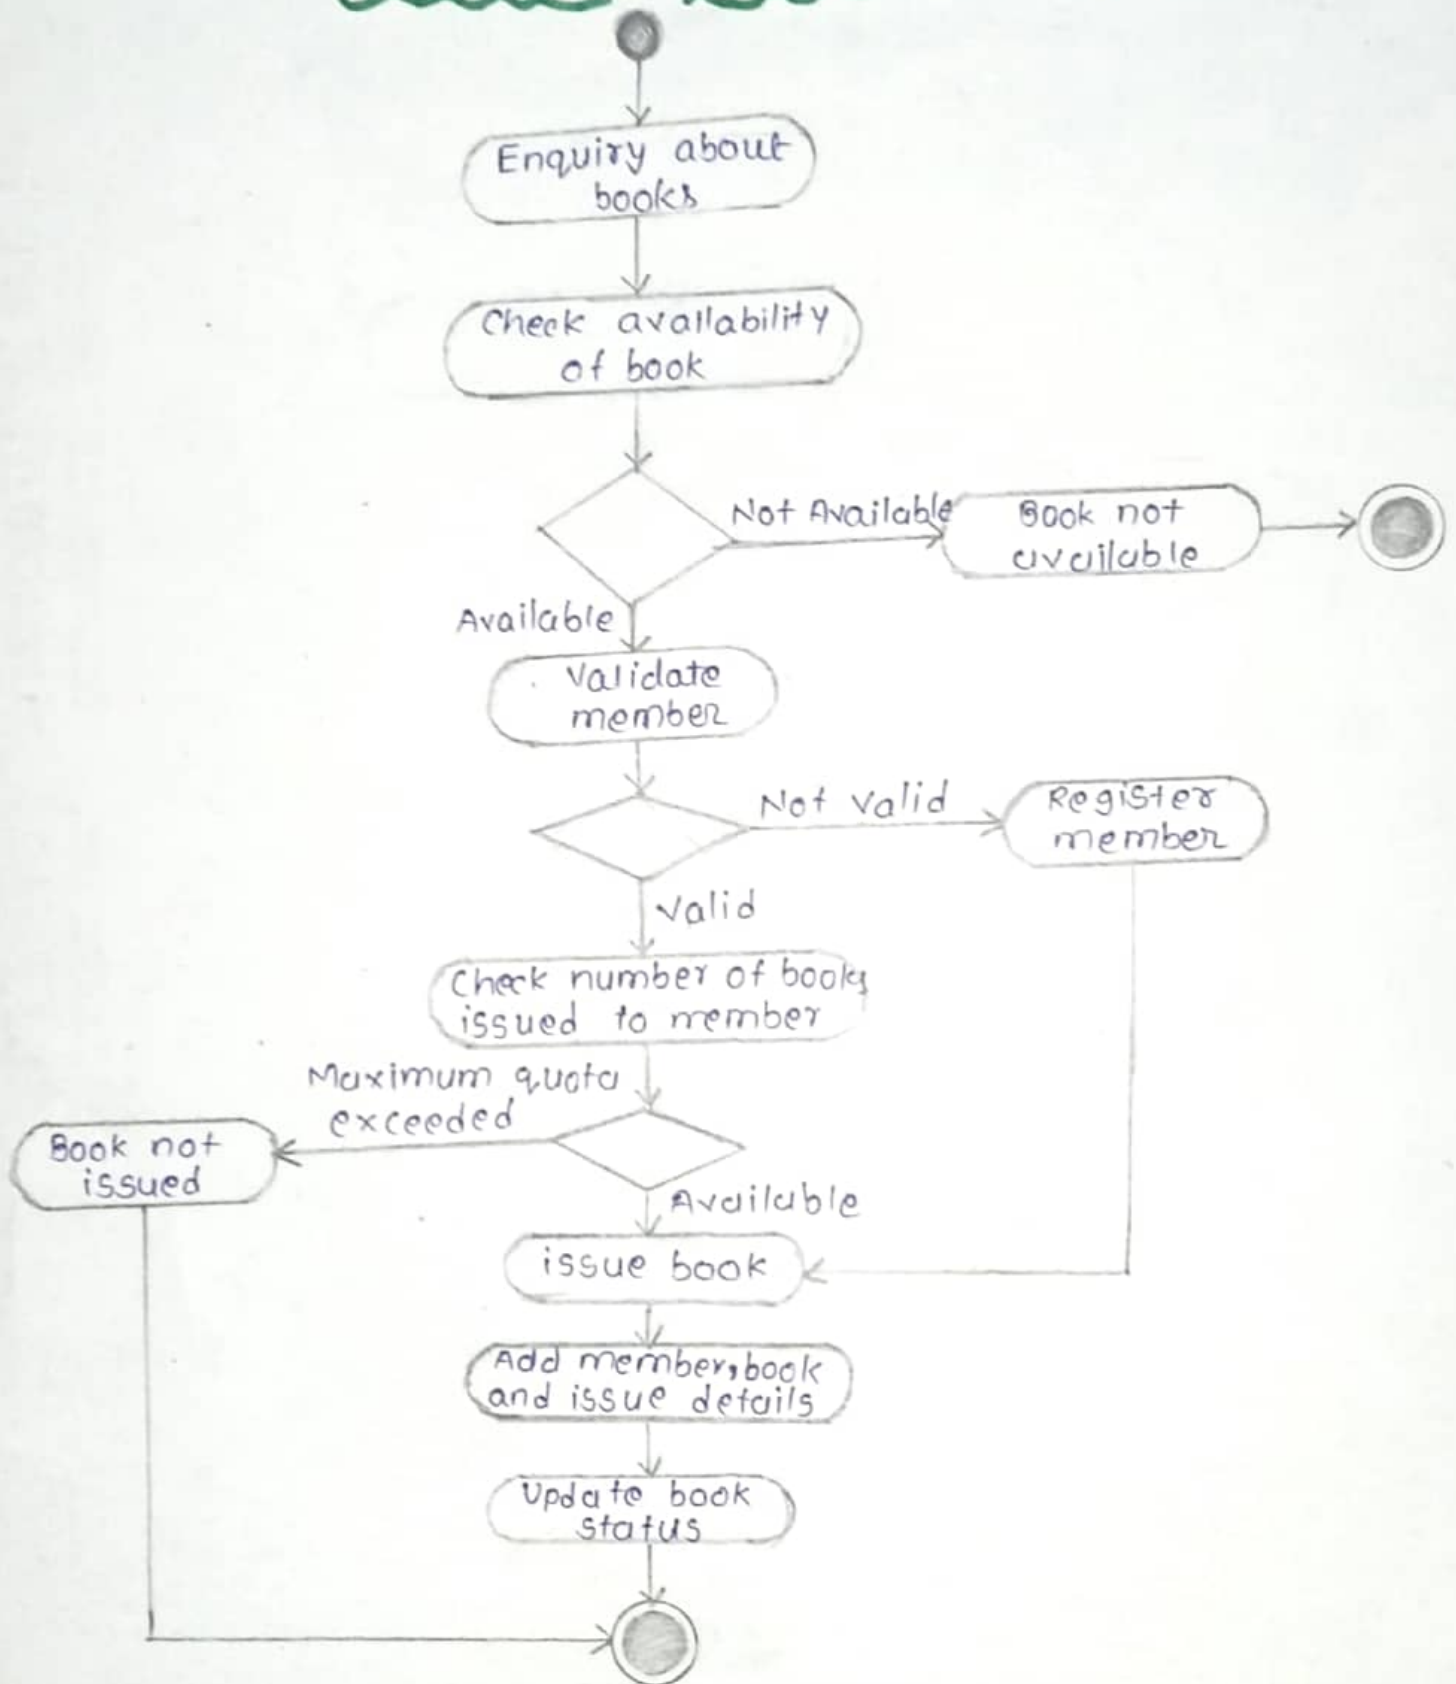 Enquiry about
books
Check availability
of book
Not Available
Book not
available
Available
Validate
member
Not valid
Register
member
Valid
Check number of books
issued to member
Maximum quota
exceeded
Book not
issued
Available
issue book
Add member, book
and issue details
Update book
status